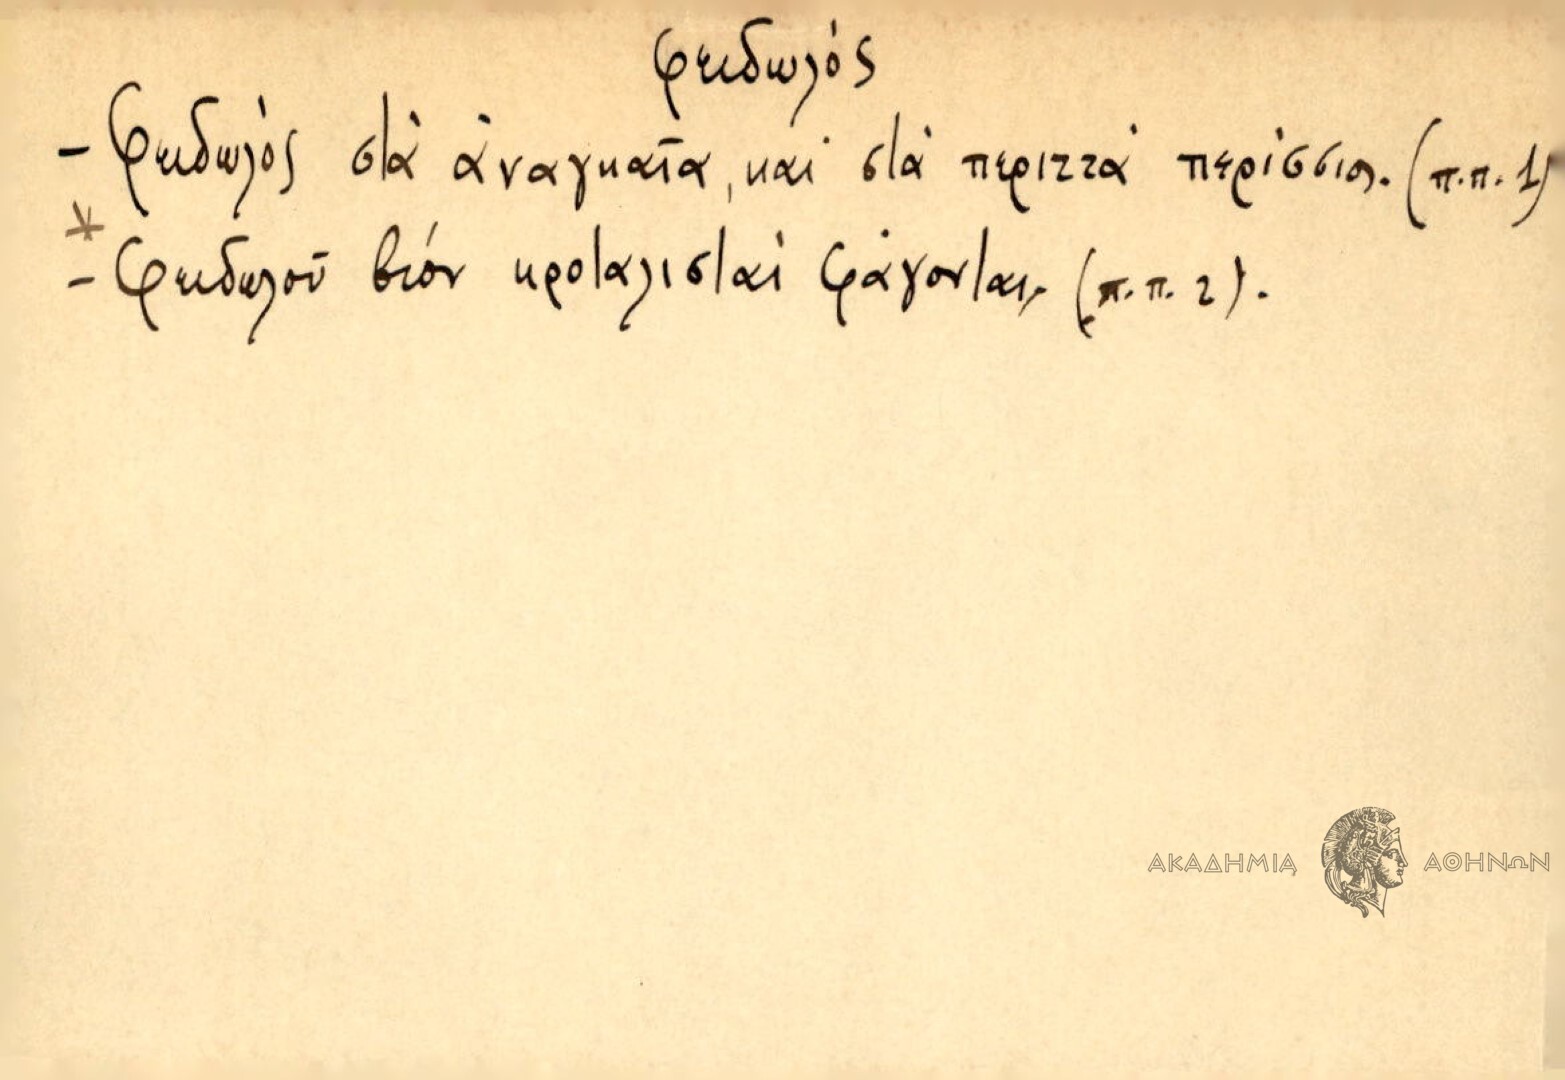 φειδωλός
- Φειδωλὸς στὰ ἀναγκαῖα, καὶ στὰ περιττὰ περίσσιος. (π.π. 1)
*
- Φειδωλοῦ βιόν κροταλισταὶ φάγονται. (π.π. 2).
ΑΚΑΔΗΜΙΑ ΑΘΗΝΩΝ